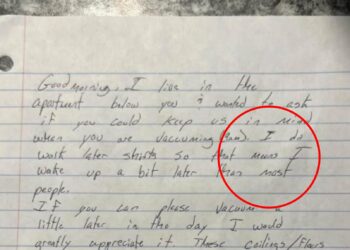 Good morning, I live in the
apartment below you & wanted to ask
if you could keep us in mind
when you are vaccuming (9am). I do
work later shifts so that means I
wake up a bit later than most
people.
If you can please vacuum a
little later in the day I would
greatly appreciate it. These ceilings/floors